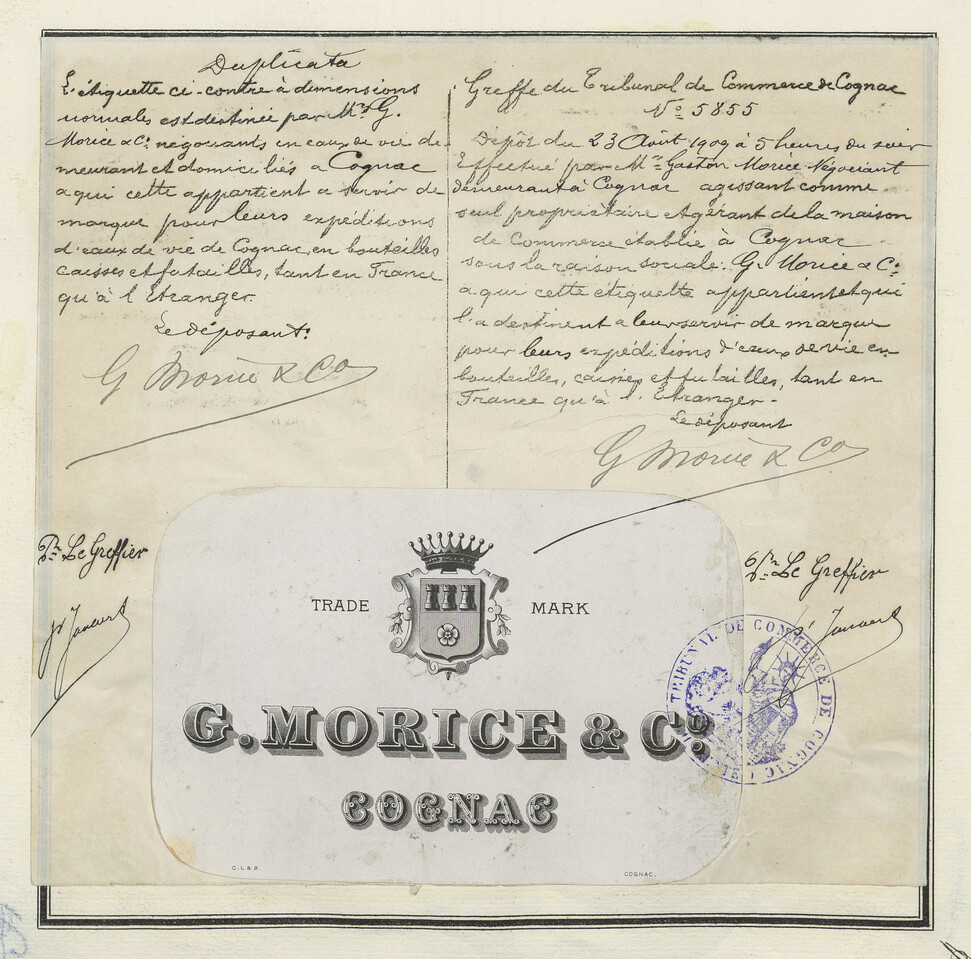 Duplicata
L'étiquette ci-contre à dimensions
normales est destinée par Mrs G.
Morice & Co. négociants en eaux de vie de-
meurant et domiciliés à Cognac
a qui cette appartient a servir de
marque pour leurs expéditions
d'eaux de vie de Cognac, en bouteilles
caisses et futailles, tant en France
qu'à l'Etranger.
Le déposant.
G Morice & Co
Pr. Le Greffier
Greffe du Tribunal de Commerce de Cognac
No. 5855
Dépôt du 23 Août 1909 à 5 heures du soir
Effectué par Mr. Gaston Morice Négociant
demeurant à Cognac agissant comme
seul propriétaire et gérant de la maison
de Commerce établie à Cognac
sous la raison sociale: G. Morice & Co.
a qui cette étiquette appartient et qui
l'a destinent a leur servir de marque
pour leurs expéditions d'eaux de vie en
bouteilles, caisses et futailles, tant en
France qu'à l'Etranger.-
Le déposant
G Morice & Co
Pr. Le Greffier
TRADE MARK
G. MORICE & Co.
COGNAC
C. L & B.
COGNAC.
TRIBUNAL DE COMMERCE DE COGNAC